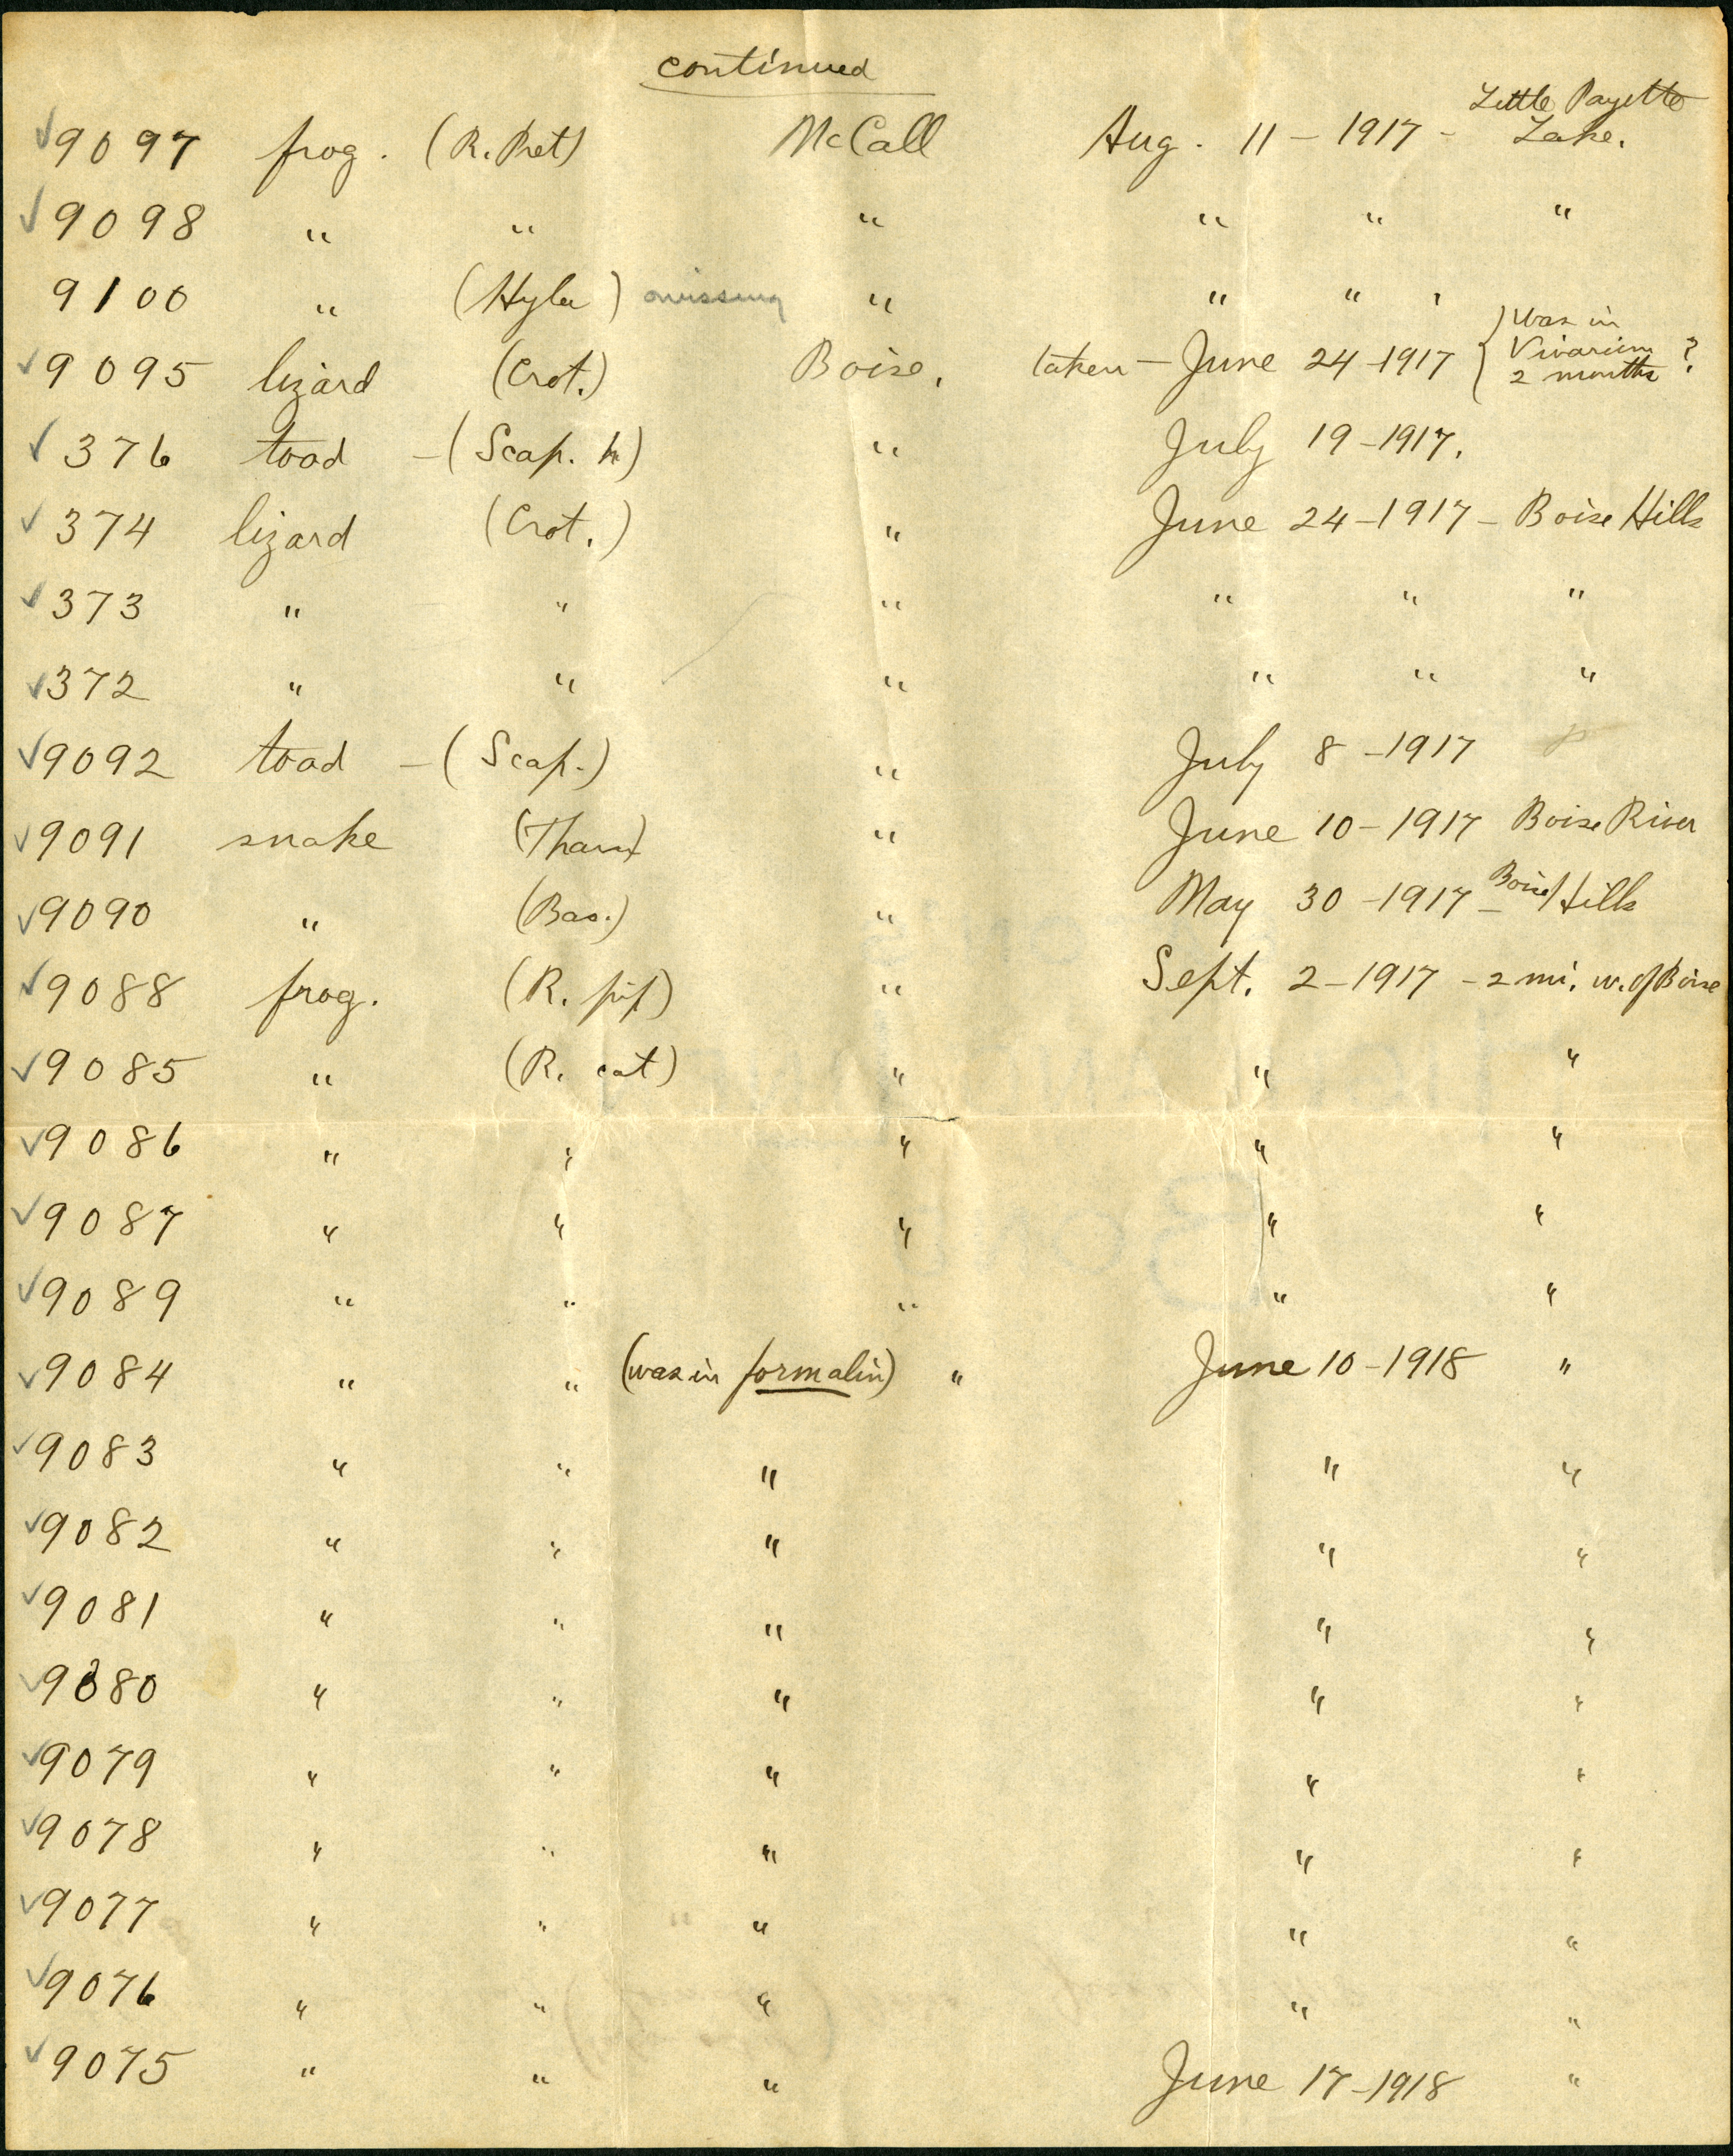 continued
✓9097 frog. (R. Pret) McCall Aug. 11 – 1917 – Little Payette Lake.
✓9098 " " " " " "
9100 " (Hyla) missing " " " '
✓9095 lizard (Crot.) Boise, taken – June 24 – 1917 { was in Vivarium 2 months ?
✓376 toad – (Scap. h) " July 19 – 1917.
✓374 lizard (Crot.) " June 24 – 1917 – Boise Hills
✓373 " " " " " "
✓372 " " " " " "
✓9092 toad – (Scap.) " July 8 – 1917
✓9091 snake (Tham) " June 10 – 1917 Boise River
✓9090 " (Bas.) " May 30 – 1917 – Boise Hills
✓9088 frog. (R. pip) " Sept. 2 – 1917 – 2 mi. w. of Boise
✓9085 " (R. cat) " " "
✓9086 " " " " "
✓9087 " " " " "
✓9089 " " " " "
✓9084 " " (was in formalin) " June 10 – 1918 "
✓9083 " " " " "
✓9082 " " " " "
✓9081 " " " " "
✓9080 " " " " "
✓9079 " " " " "
✓9078 " " " " "
✓9077 " " " " "
✓9076 " " " " "
✓9075 " " " June 17 – 1918 "